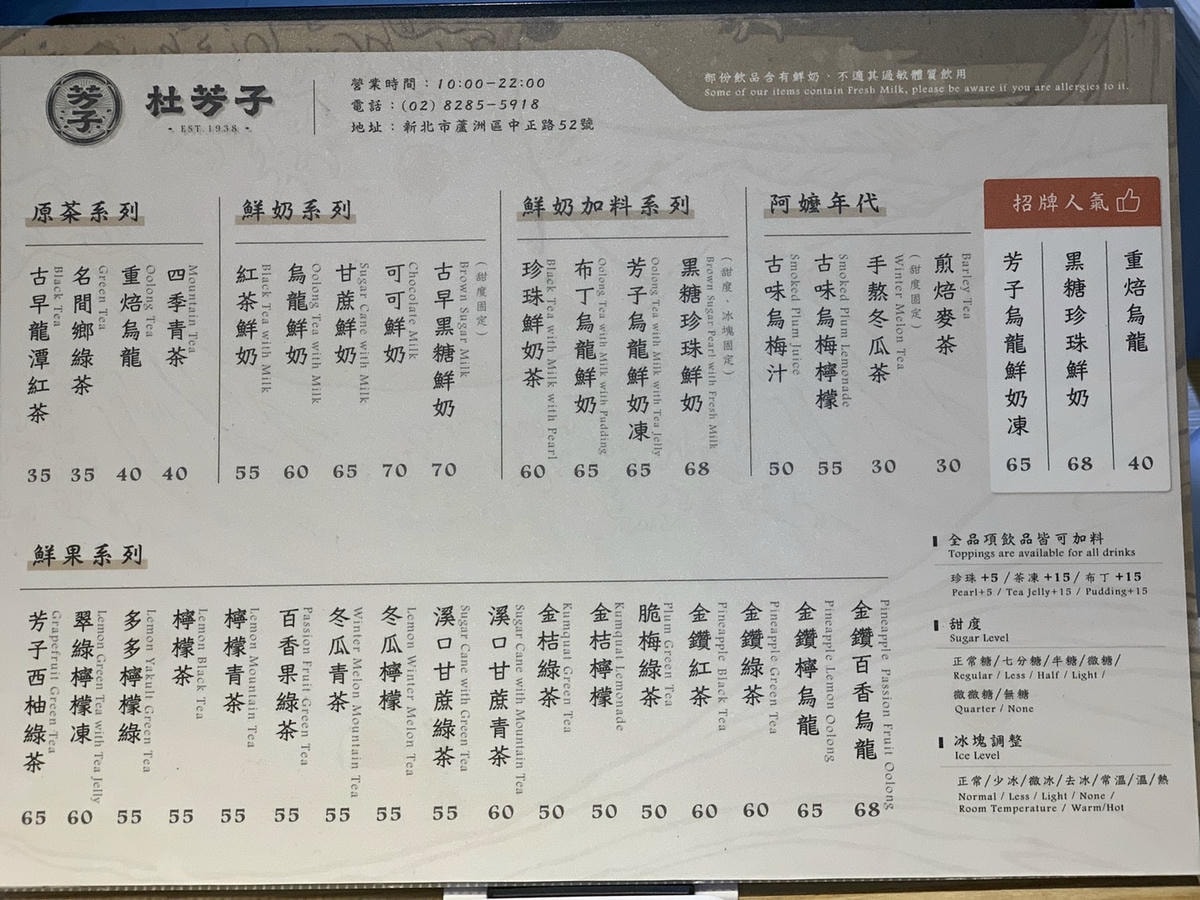 芳子
杜芳子
EST.1938
營業時間：10:00-22:00
電話：(02) 8285-5918
地址：新北市蘆洲區中正路52號
部份飲品含有鮮奶、不適其過敏體質飲用
Some of our items contain Fresh Milk, please be aware if you are allergies to it.
原茶系列
古早龍潭紅茶
Black Tea
35
名間鄉綠茶
Green Tea
35
重焙烏龍
Oolong Tea
40
四季青茶
Mountain Tea
40
鮮奶系列
紅茶鮮奶
Black Tea with Milk
55
烏龍鮮奶
Oolong Tea with Milk
60
甘蔗鮮奶
Sugar Cane with Milk
65
可可鮮奶
Chocolate Milk
70
古早黑糖鮮奶
Brown Sugar Milk
(甜度固定)
70
鮮奶加料系列
珍珠鮮奶茶
Black Tea with Milk with Pearl
60
布丁烏龍鮮奶
Oolong Tea with Milk with Pudding
65
芳子烏龍鮮奶凍
Oolong Tea with Milk with Tea Jelly
65
黑糖珍珠鮮奶
Brown Sugar Pearl with Fresh Milk
(甜度、冰塊固定)
68
阿嬤年代
古味烏梅汁
Smoked Plum Juice
50
古味烏梅檸檬
Smoked Plum Lemonade
55
手熬冬瓜茶
Winter Melon Tea
(甜度固定)
30
煎焙麥茶
Barley Tea
30
招牌人氣
芳子烏龍鮮奶凍
65
黑糖珍珠鮮奶
68
重焙烏龍
40
鮮果系列
芳子西柚綠茶
Grapefruit Green Tea
65
翠綠檸檬凍
Lemon Green Tea with Tea Jelly
60
多多檸檬綠
Lemon Yakult Green Tea
55
檸檬茶
Lemon Black Tea
55
檸檬青茶
Lemon Mountain Tea
55
百香果綠茶
Passion Fruit Green Tea
55
冬瓜青茶
Winter Melon Mountain Tea
55
冬瓜檸檬
Lemon Winter Melon Tea
55
溪口甘蔗綠茶
Sugar Cane with Green Tea
55
溪口甘蔗青茶
Sugar Cane with Mountain Tea
60
金桔綠茶
Kumquat Green Tea
50
金桔檸檬
Kumquat Lemonade
50
脆梅綠茶
Plum Green Tea
50
金鑽紅茶
Pineapple Black Tea
60
金鑽綠茶
Pineapple Green Tea
60
金鑽檸烏龍
Pineapple Lemon Oolong
65
金鑽百香烏龍
Pineapple Passion Fruit Oolong
68
全品項飲品皆可加料
Toppings are available for all drinks
珍珠+5/茶凍+15/布丁+15
Pearl+5 / Tea Jelly+15 / Pudding+15
甜度
Sugar Level
正常糖/七分糖/半糖/微糖/
Regular / Less / Half / Light /
微微糖/無糖
Quarter / None
冰塊調整
Ice Level
正常/少冰/微冰/去冰/常溫/溫/熱
Normal / Less / Light / None /
Room Temperature / Warm/Hot